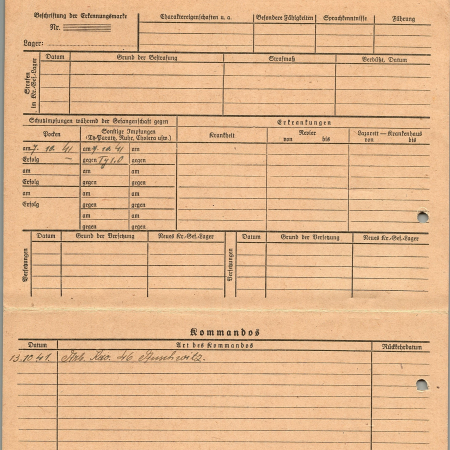 Beschriftung der Erkennungsmarke
Nr.
Lager:
Charaktereigenschaften u. a.
Besondere Fähigkeiten
Sprachkenntnisse
Führung
Strafen im Kr.-Gef.-Lager
Datum
Grund der Bestrafung
Strafmaß
Verbüßt, Datum
Schutzimpfungen während der Gefangenschaft gegen
Erkrankungen
Pocken
Sonstige Impfungen
(Ty-Paraty, Ruhr, Cholera usw.)
Krankheit
Revier
von bis
Lazarett — Krankenhaus
von bis
am 7. 10. 41 am 9. 10. 41 am
Erfolg — gegen gegen
am am am
Erfolg gegen gegen
am am am
Erfolg gegen gegen
am am
gegen gegen
Versetzungen
Datum
Grund der Versetzung
Neues Kr.-Gef.-Lager
Versetzungen
Datum
Grund der Versetzung
Neues Kr.-Gef.-Lager
Kommandos
Datum
Art des Kommandos
Rückkehrdatum
13.10.41. Arb. Kdo. Auschwitz.